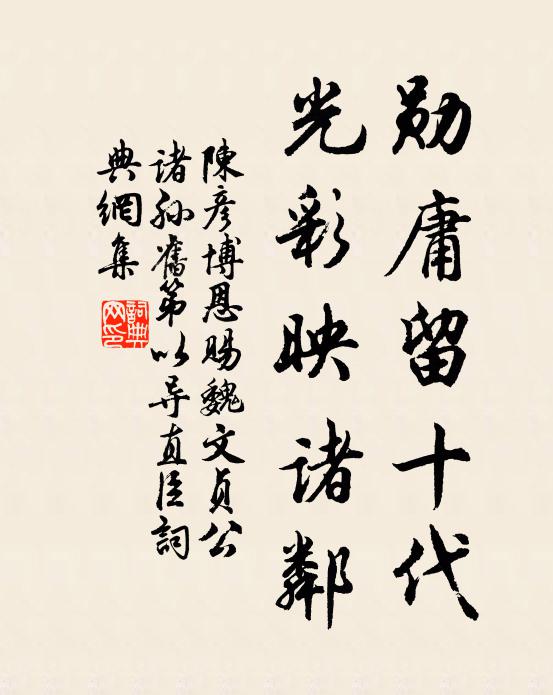 勋庸留十代
光彩映诸鄰
陳彦博恩賜魏文貞公
诸孙舊第以导直臣詞
典網集
詞典網印